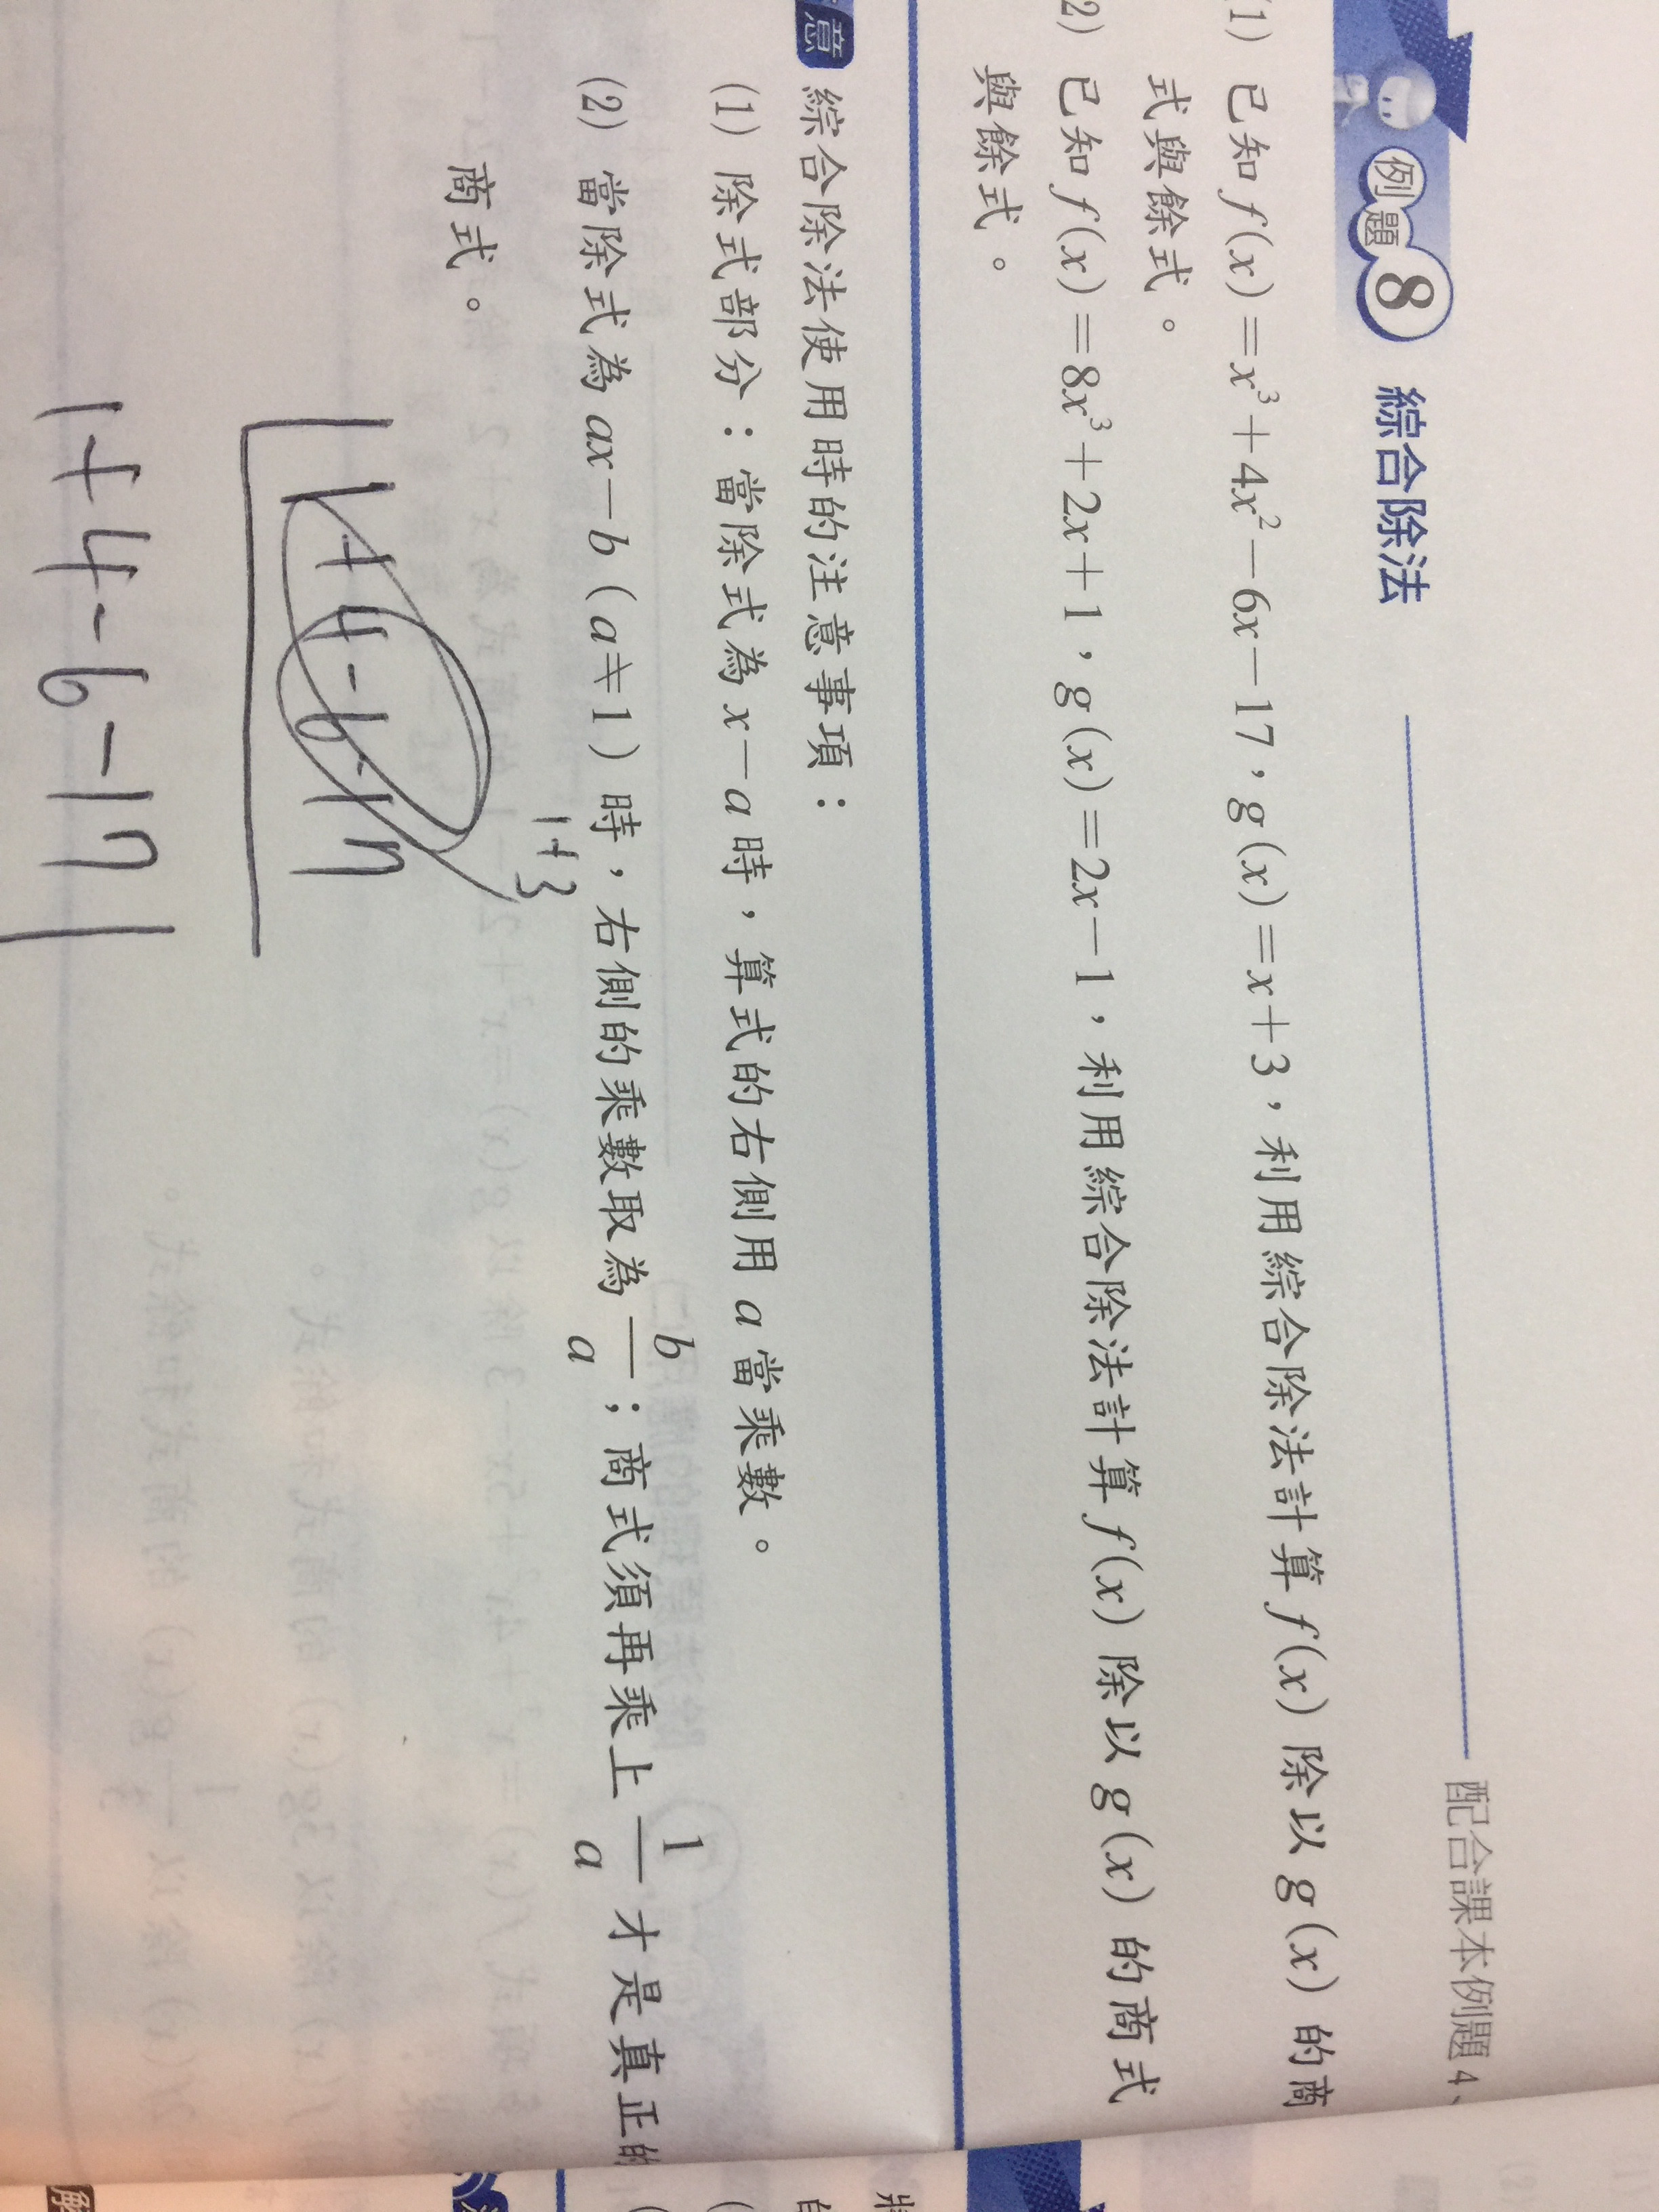 例題8 綜合除法 配合課本例題4、
(1) 已知 f(x)=x³+4x²-6x-17,g(x)=x+3,利用綜合除法計算 f(x) 除以 g(x) 的商
式與餘式。
2) 已知 f(x)=8x³+2x+1,g(x)=2x-1,利用綜合除法計算 f(x) 除以 g(x) 的商式
與餘式。
意 綜合除法使用時的注意事項:
(1) 除式部分:當除式為 x-a 時,算式的右側用 a 當乘數。
(2) 當除式為 ax-b(a≠1)時,右側的乘數取為 b/a;商式須再乘上 1/a 才是真正的
商式。
1+3
1+4-6-17
1+4-6-17
解